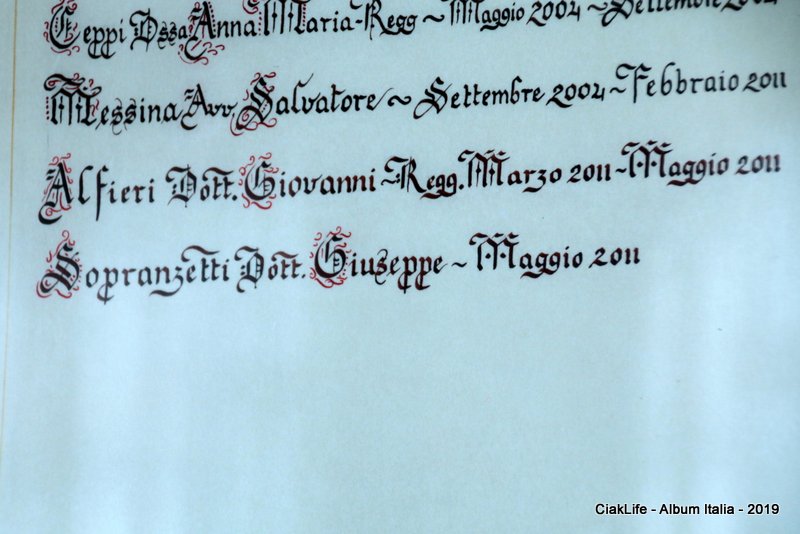 Ceppi Dssa Anna Maria-Regg ~ Maggio 2004 ~ Settembre 2004
Messina Avv. Salvatore ~ Settembre 2004 ~ Febbraio 2011
Alfieri Dott. Giovanni ~ Regg. Marzo 2011 ~ Maggio 2011
Sopranzetti Dott. Giuseppe ~ Maggio 2011
CiakLife - Album Italia - 2019